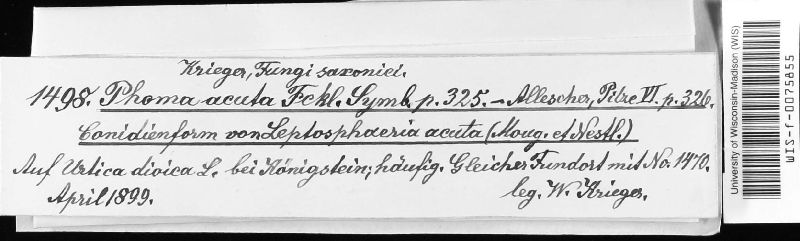 Krieger, Fungi saxonici.
1498. Phoma acuta Fckl. Symb. p. 325. – Allescher, Pilze VI. p. 326.
Conidienform von Leptosphaeria acuta (Moug. et Nestl.)
Auf Urtica dioica L. bei Königstein; häufig. Gleicher Fundort mit No. 1470.
April 1899. leg. W. Krieger.
University of Wisconsin-Madison (WIS)
WIS-f-0075855